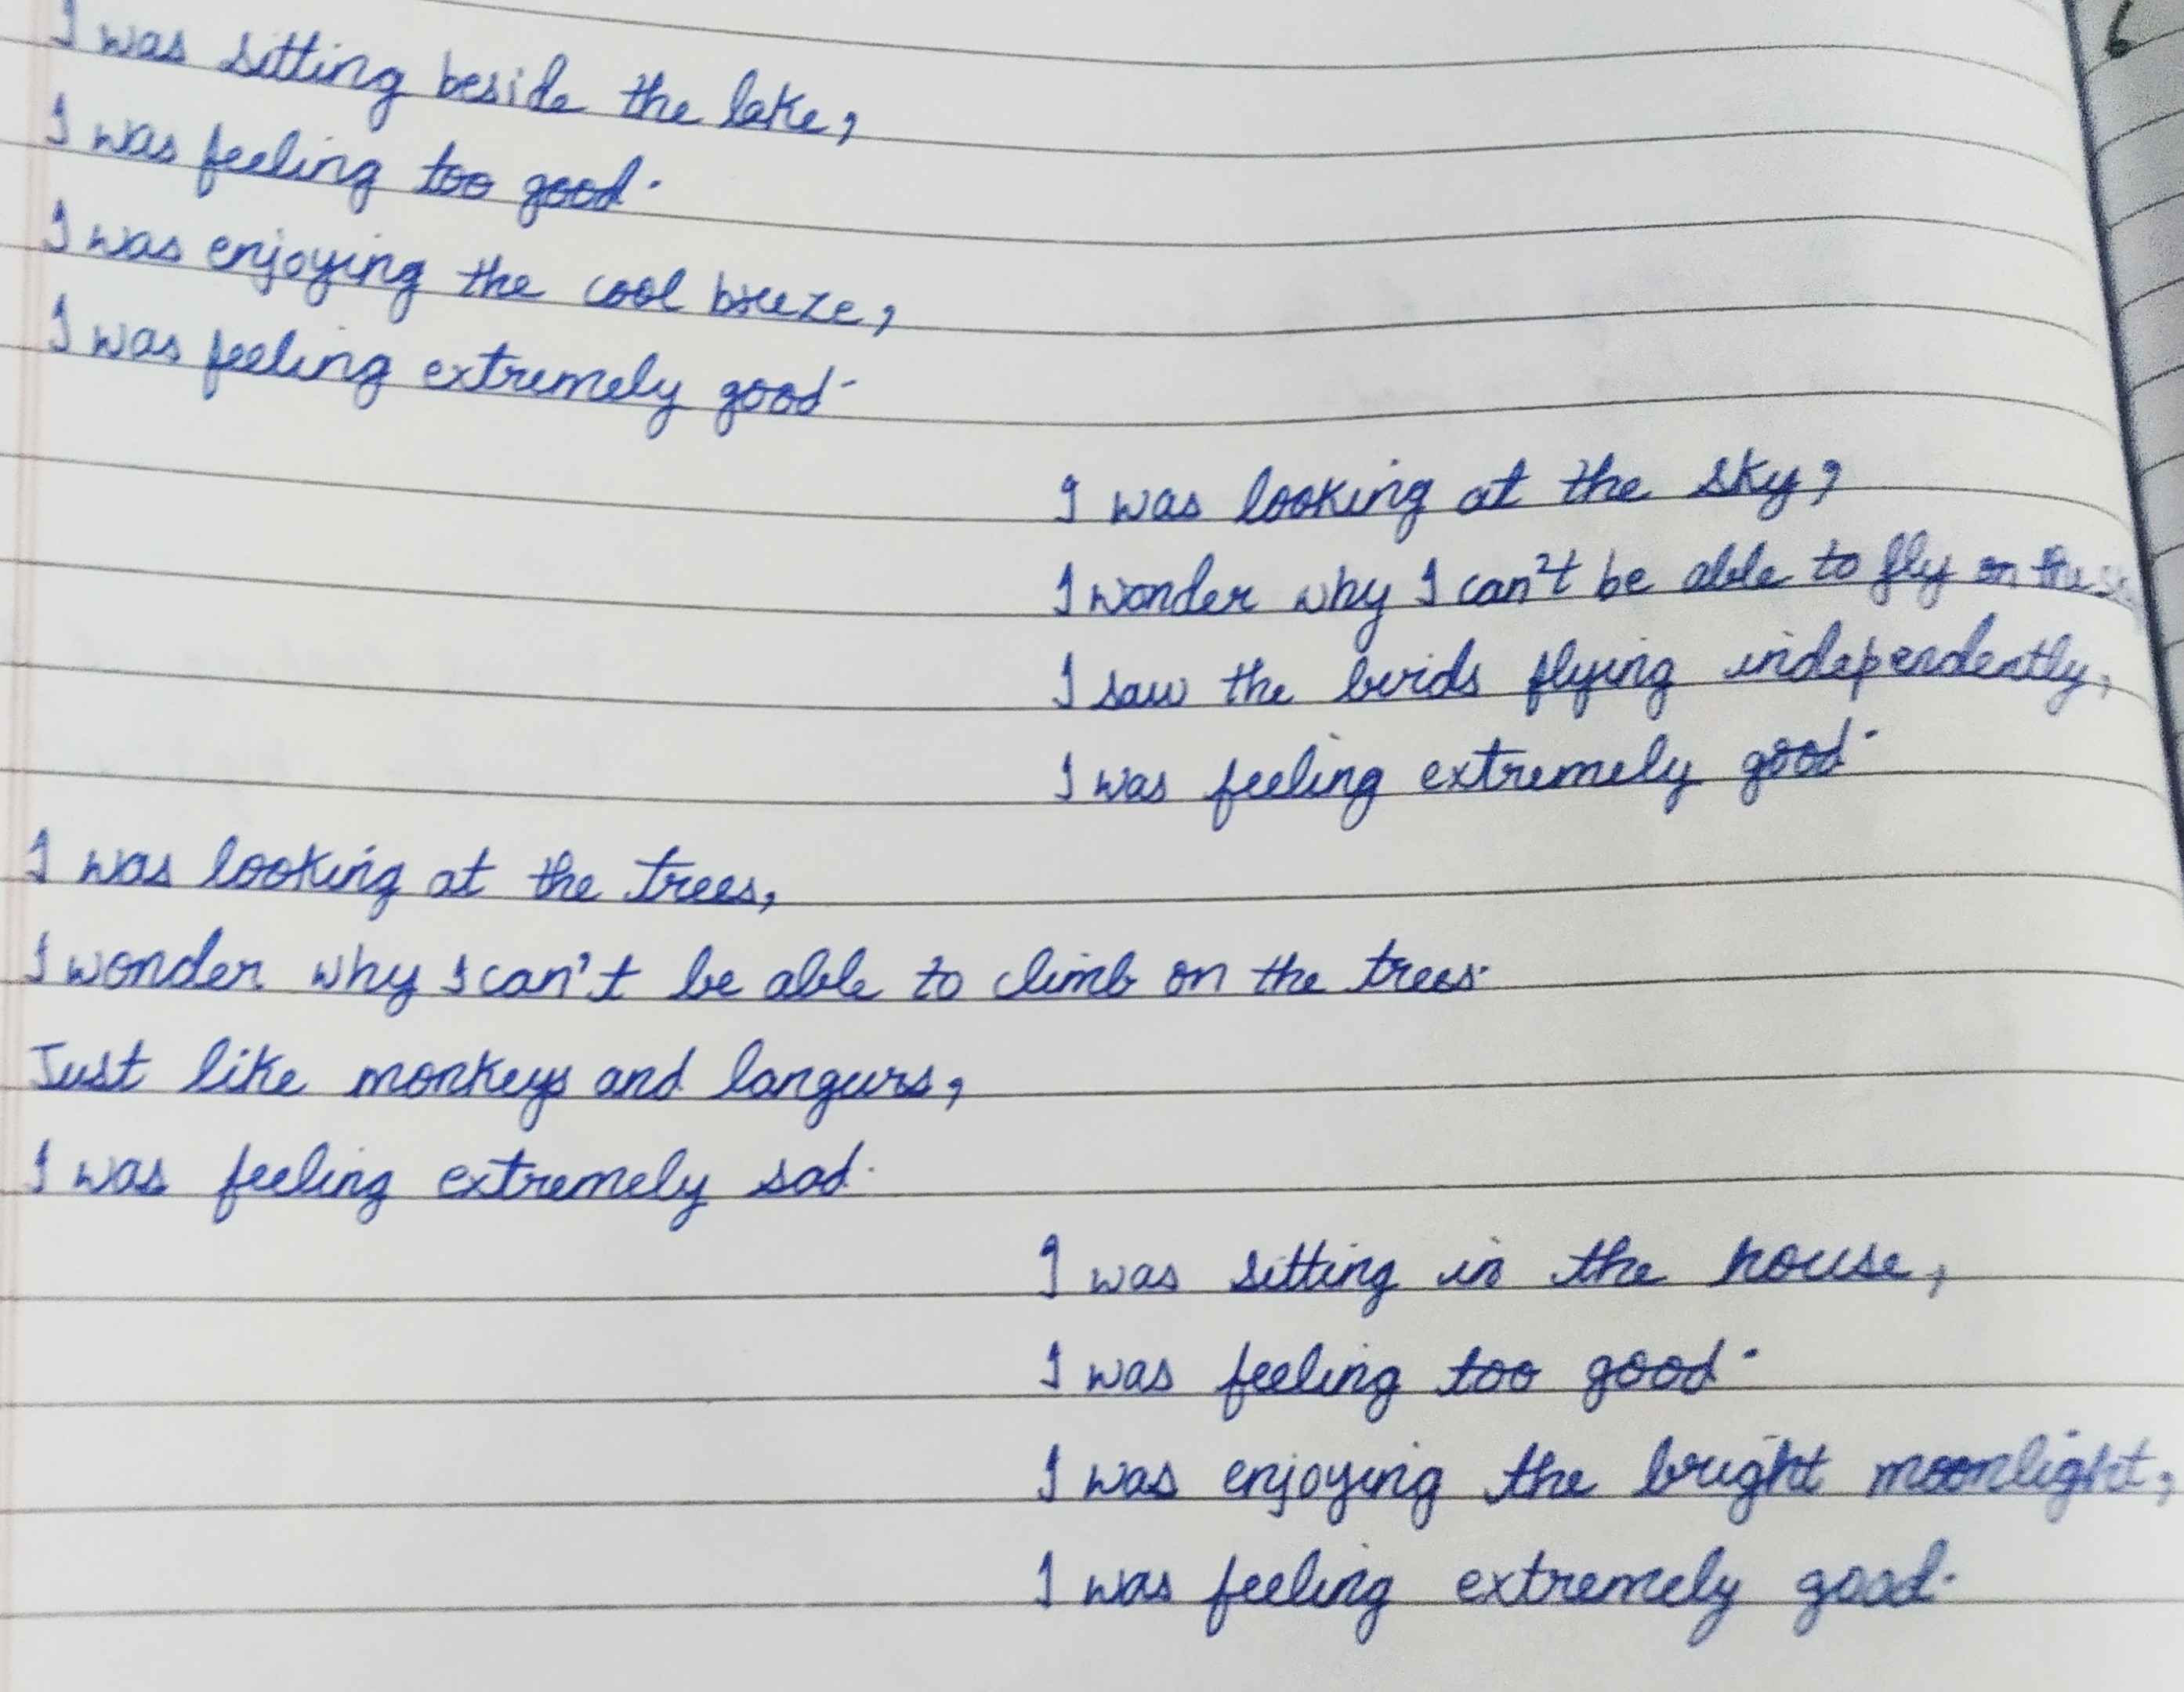 I was sitting beside the lake,
I was feeling too good.
I was enjoying the cool breeze,
I was feeling extremely good.
I was looking at the sky,
I wonder why I can't be able to fly on the
I saw the birds flying independently,
I was feeling extremely good.
I was looking at the trees,
I wonder why I can't be able to climb on the trees.
Just like monkeys and langurs,
I was feeling extremely sad.
I was sitting in the house,
I was feeling too good.
I was enjoying the bright moonlight,
I was feeling extremely good.